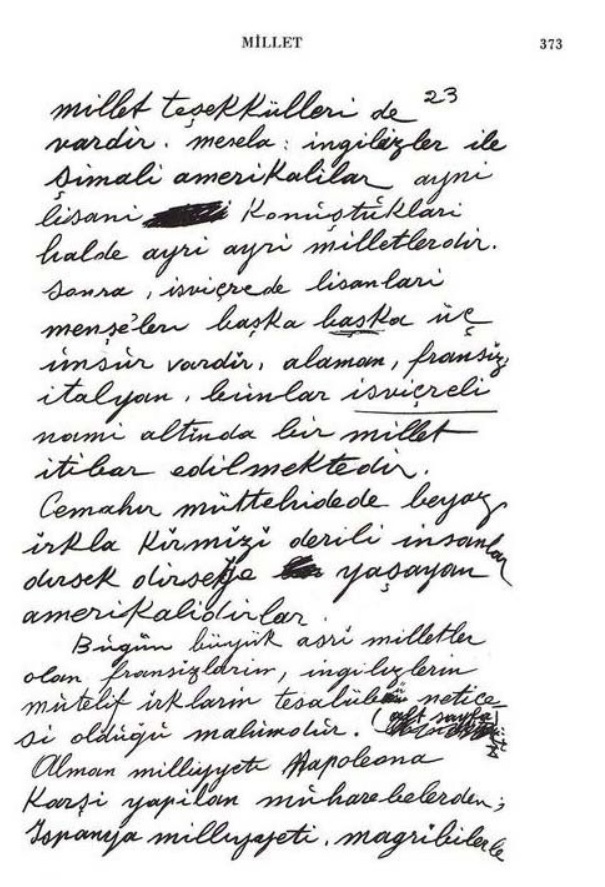 MİLLET 373
millet teşekkülleri de 23
vardir. mesela: ingilizler ile
Şimali amerikalilar ayni
lisani konuştuklari
halde ayri ayri milletlerdir.
Sonra, isviçrede lisanlari
menşe'leri başka başka üç
ünsür vardir, alaman, fransiz,
italyan, bunlar isviçreli
nami altinda bir millet
itibar edilmektedir.
Cemahir müttehidede beyaz
irkla Kirmizi derili insanlar
dirsek dirseğe yaşayan
amerikalidirlar.
Bugün büyük asri milletler
olan fransizlarin, ingilizlerin
mütelif irklarin tesalübü netice-
si olduğu malûmdur. (alt sayfa
Alman milliyyeti Napoleona
Karşi yapilan muharebelerden;
Ispanya milliyyeti, magribilerle